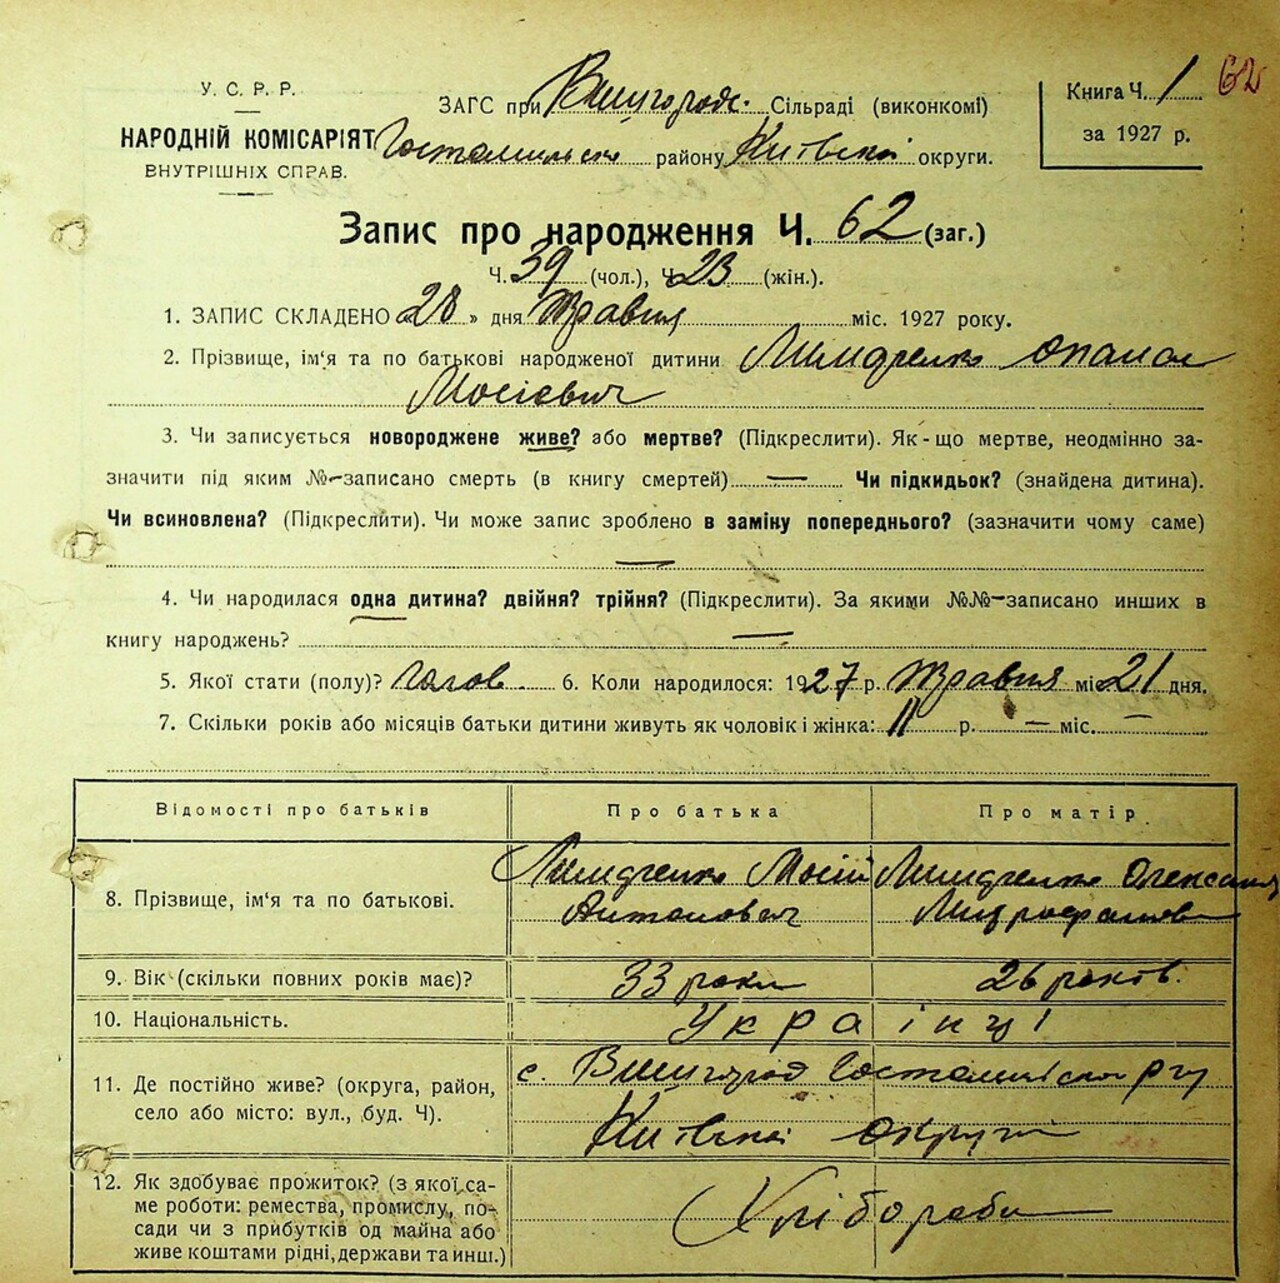 У. С. Р. Р.
НАРОДНІЙ КОМІСАРІЯТ
ВНУТРІШНІХ СПРАВ.
ЗАГС при Вишгородс. Сільраді (виконкомі)
Гостомільськ району Київської округи.
Книга Ч. 1
за 1927 р.
62
Запис про народження Ч. 62 (заг.)
Ч. 39 (чол.), Ч. 23 (жін.).
1. ЗАПИС СКЛАДЕНО «28» дня Травня міс. 1927 року.
2. Прізвище, ім'я та по батькові народженої дитини Опанас
Мосієвич
3. Чи записується новороджене живе? або мертве? (Підкреслити). Як-що мертве, неодмінно за-
значити під яким №-записано смерть (в книгу смертей) — Чи підкидьок? (знайдена дитина).
Чи всиновлена? (Підкреслити). Чи може запис зроблено в заміну попереднього? (зазначити чому саме)
—
4. Чи народилася одна дитина? двійня? трійня? (Підкреслити). За якими №№-записано инших в
книгу народжень? —
5. Якої стати (полу)? чолов. 6. Коли народилося: 1927 р. Травня міс. 21 дня.
7. Скільки років або місяців батьки дитини живуть як чоловік і жінка: 11 р. — міс. —
Відомості про батьків Про батька Про матір
8. Прізвище, ім'я та по батькові.
Мосій
Антонович
Олександра
Митрофанов
9. Вік (скільки повних років має)? 33 роки 26 років.
10. Національність. Українці
11. Де постійно живе? (округа, район,
село або місто: вул., буд. Ч).
с. Вишгород Гостомільськ р-ну
Київської округи
12. Як здобуває прожиток? (з якої са-
ме роботи: ремества, промислу, по-
сади чи з прибутків од майна або
живе коштами рідні, держави та инш.)
Хлібороби